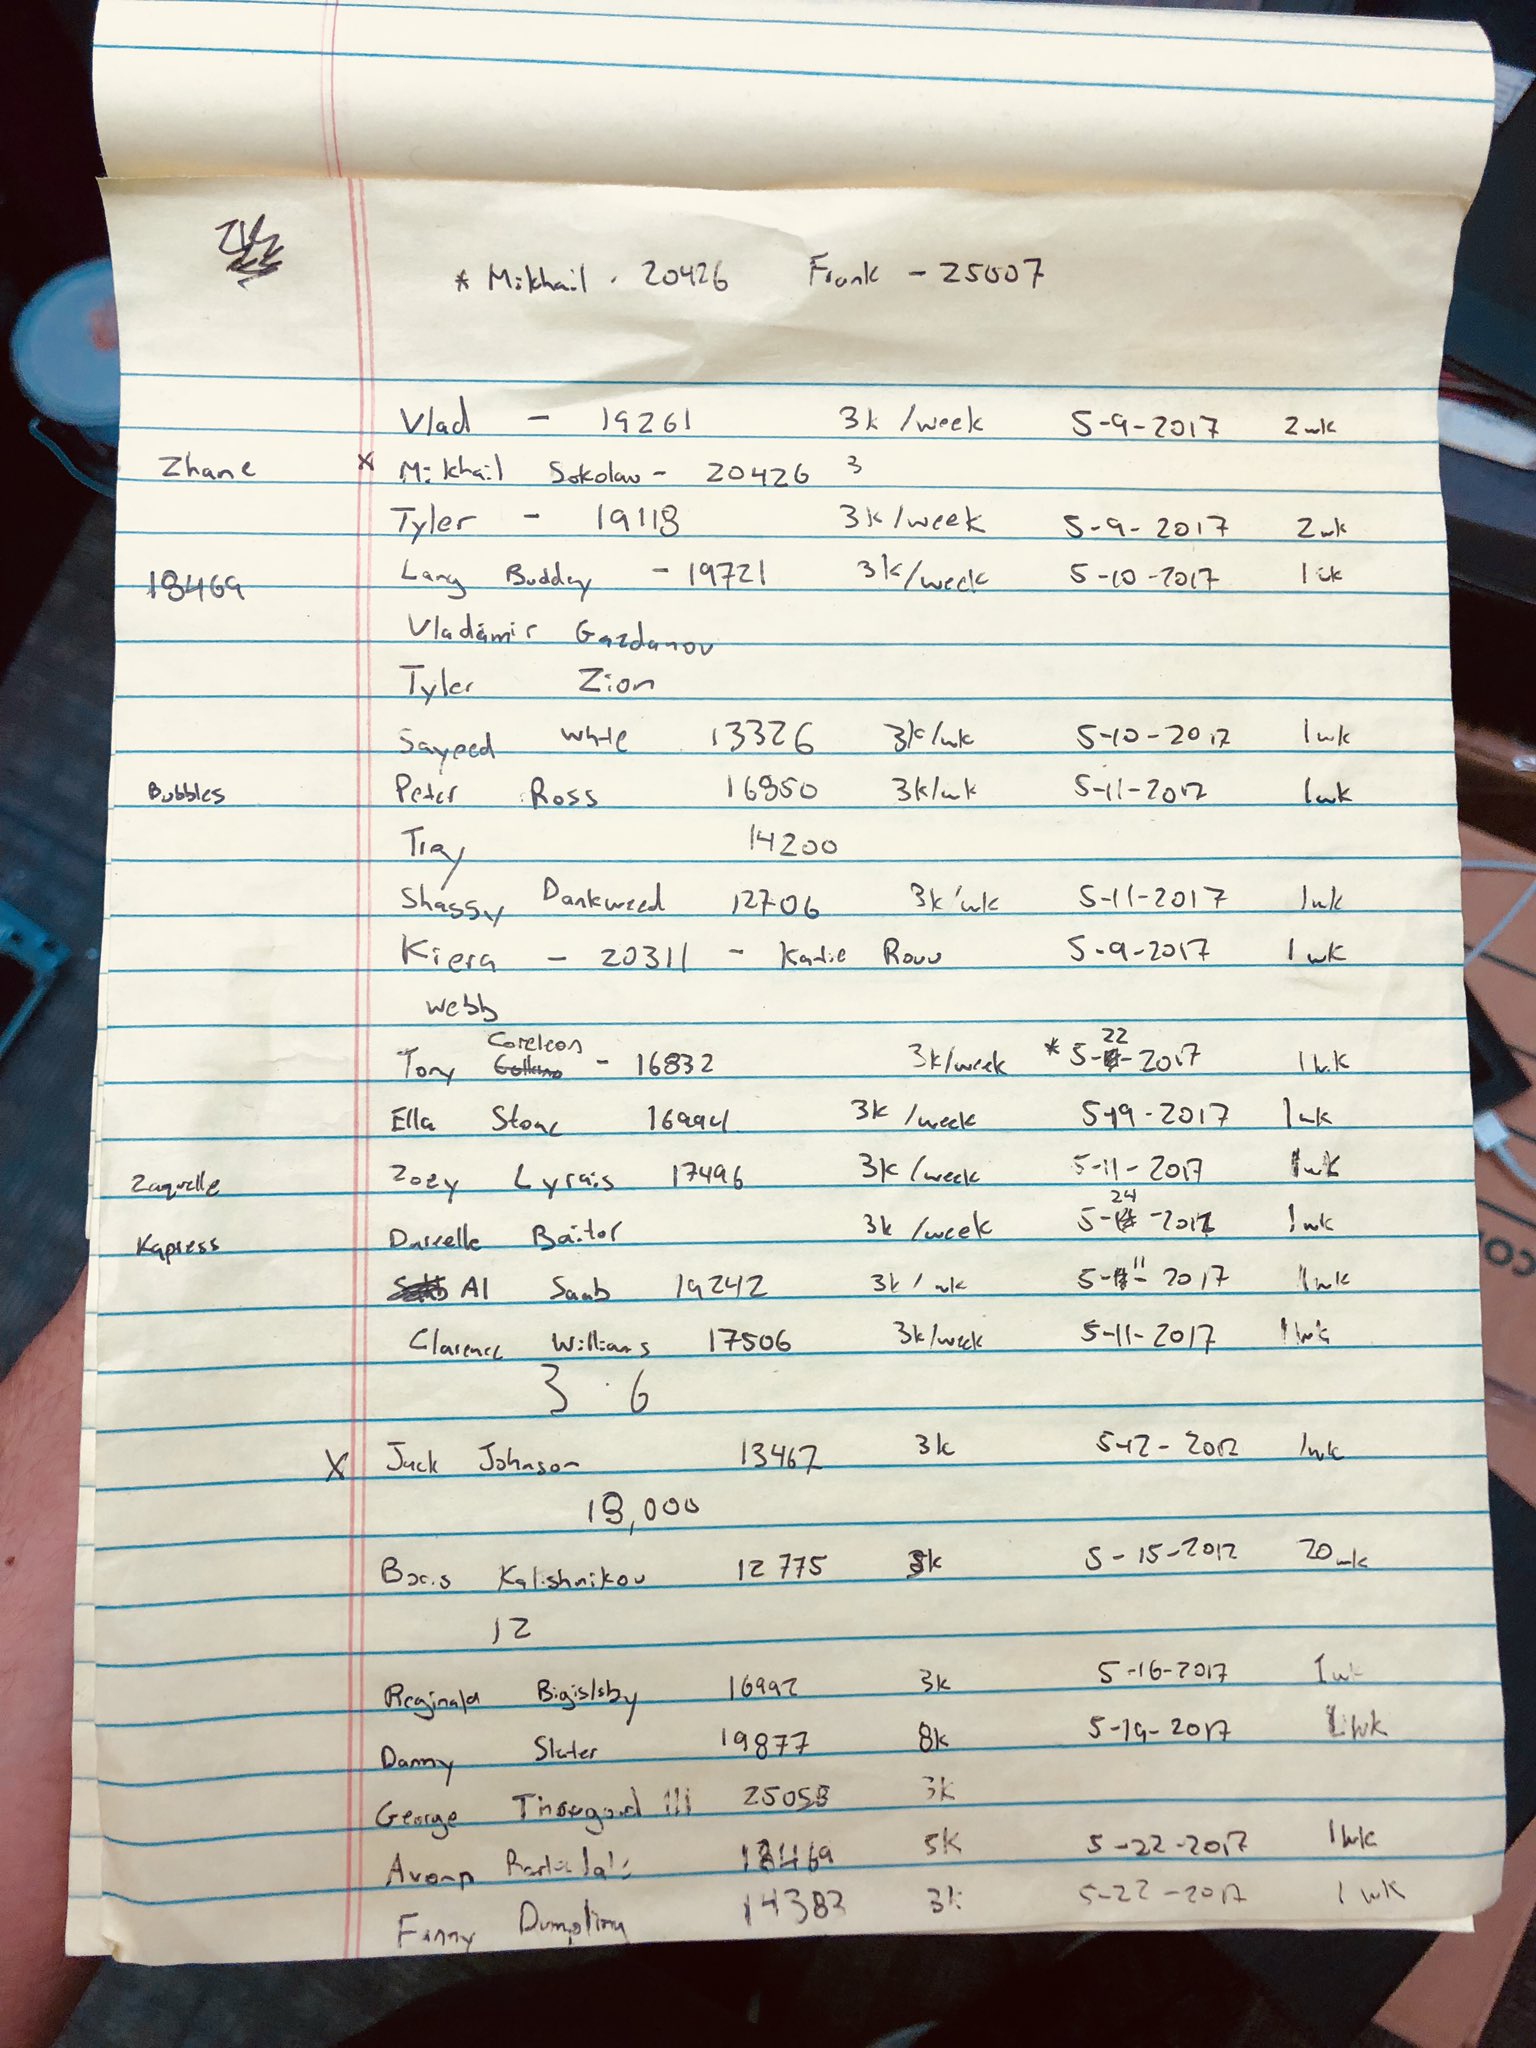 * Mikhail - 20426 Frank - 25007
Vlad - 19261 3k/week 5-9-2017 2wk
Zhane x Mikhail Sokolov - 20426 3
Tyler - 19118 3k/week 5-9-2017 2wk
18469 Lang Budday - 19721 3k/week 5-10-2017 1wk
Vladamir Gazdanov
Tyler Zion
Sayeed White 13326 3k/wk 5-10-2017 1wk
Bubbles Peter Ross 16950 3k/wk 5-11-2017 1wk
Tray 14200
Shassy Dankweed 12706 3k/wk 5-11-2017 1wk
Kiera - 20311 - Katie Rovv 5-9-2017 1wk
Webb
Coreleon 22
Tony - 16832 3k/week * 5- -2017 1wk
Ella Stone 16994 3k/week 5-19-2017 1wk
Zaquelle Zoey Lyrais 17496 3k/week 5-11-2017 1wk
24
Kapress Darcelle Baitor 3k/week 5- -2017 1wk
Al Saab 19242 3k/wk 5-11-2017 1wk
Clarence Williams 17506 3k/week 5-11-2017 1wk
3 6
X Jack Johnson 13467 3k 5-12-2017 1wk
18,000
Boris Kalishnikov 12775 5-15-2017
12
Reginald Bigislsby 16992 3k 5-16-2017 1wk
Danny Slater 19877 8k 5-19-2017 1wk
George III 3k
Avonn 18469 5k 5-22-2017 1wk
Finny Dumpling 14382 3k 5-22-2017 1wk